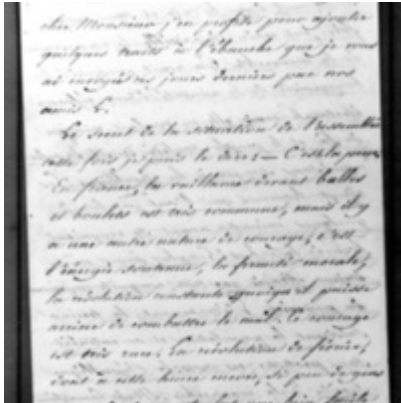 cher Monsieur j'en profite pour ajouter
quelques traits à l'ébauche que je vous
ai envoyée ces jours derniers par nos
amis C.
Le secret de la situation de l'assemblée
cette fois je puis le dire; — C'est la peur.
En france, la vaillance devant balles
et boulets est très commune, mais il y
a une autre nature de courage, c'est
l'énergie soutenue, la fermeté morale,
la résolution constante quoiqu'il puisse
arriver de combattre le mal. Ce courage
est très rare. La révolution de février,
dont à cette heure encore, si peu de gens